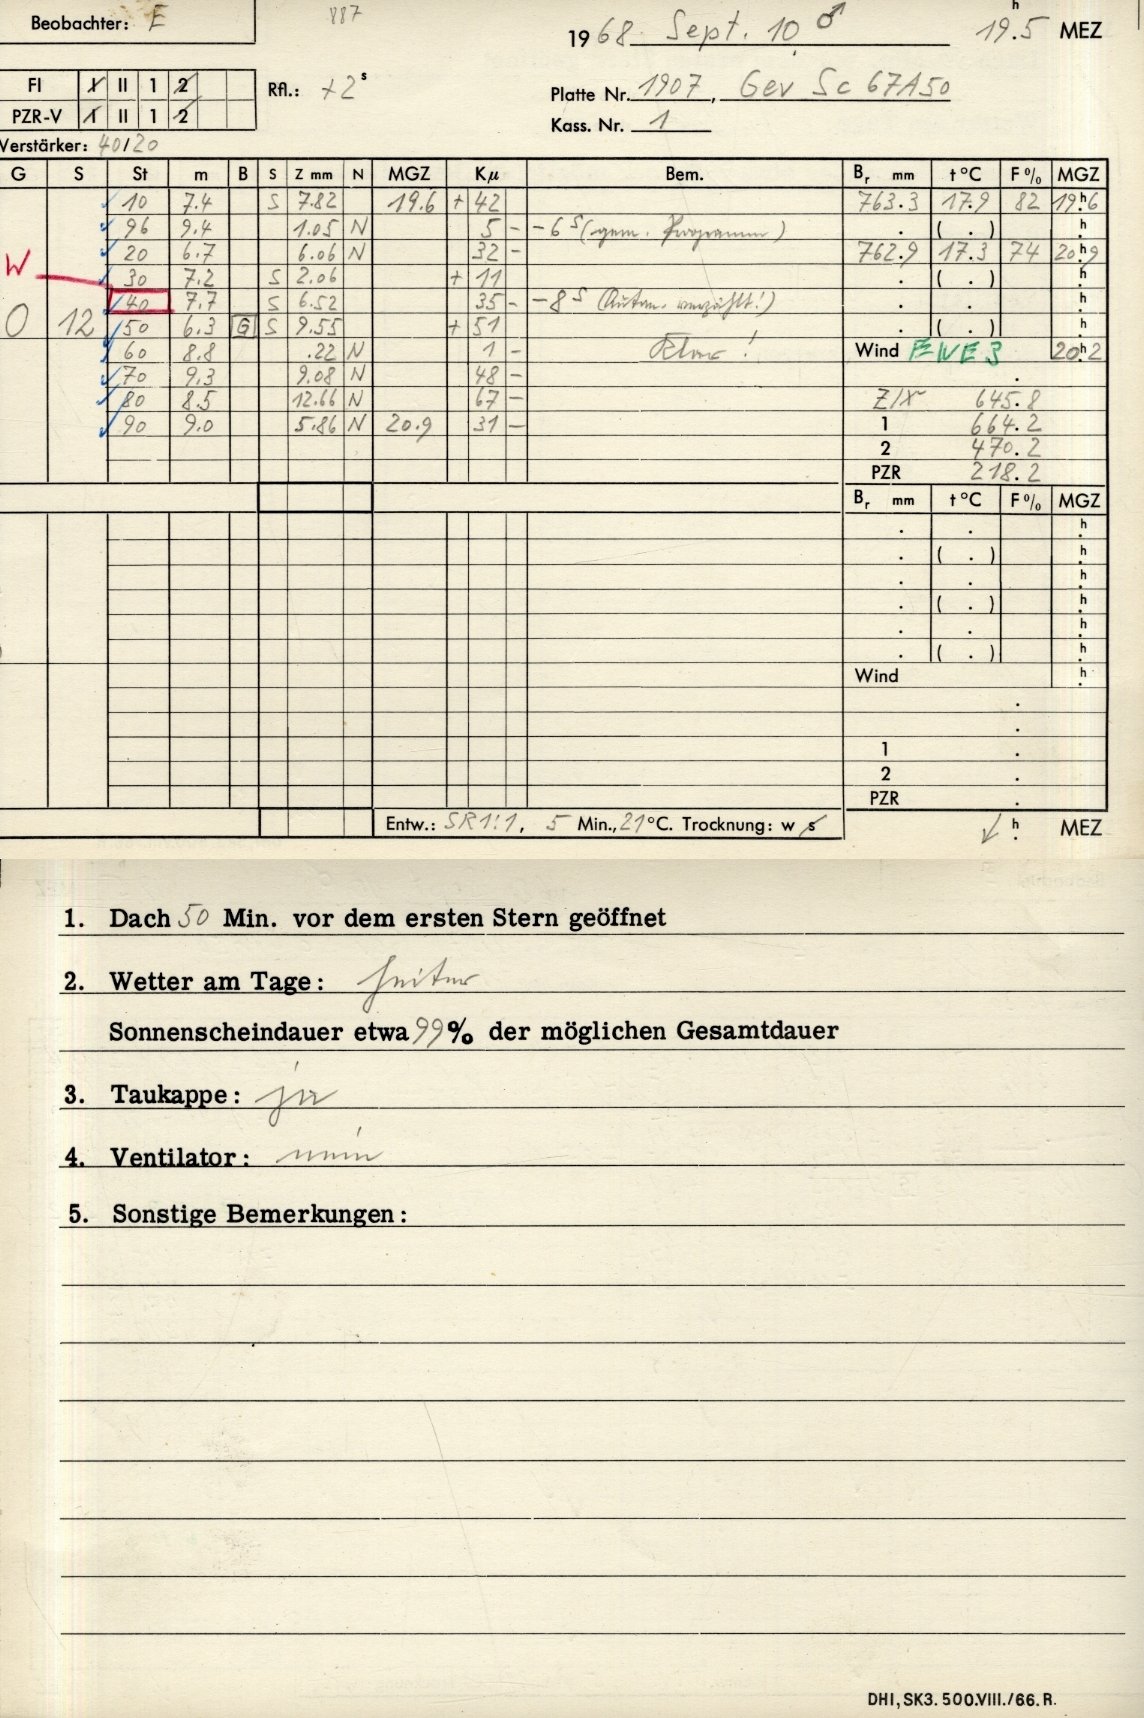 Beobachter: E 887 1968 Sept. 10 ♂ 19.5 h MEZ
FI I II 1 2 Rfl.: +2 s Platte Nr. 1907, Gev Sc 67A50
PZR-V I II 1 2 Kass. Nr. 1
Verstärker: 40/20
G S St m B S Z mm N MGZ Kµ Bem. Br mm t °C F % MGZ
10 7.4 S 7.82 19.6 + 42 763.3 17.9 82 19 h 6
96 9.4 1.05 N 5 - -6 s (gem. Programm) . ( . ) h
20 6.7 6.06 N 32 - 762.9 17.3 74 20 h 9
W 30 7.2 S 2.06 + 11 . ( . ) h
40 7.7 S 6.52 35 - -8 s (Autom. verzählt!) . . h
0 12 50 6.3 G S 9.55 + 51 . ( . ) h
60 8.8 .22 N 1 - Klar! Wind ENE 3 20 h 2
70 9.3 9.08 N 48 - .
80 8.5 12.66 N 67 - 645.8
90 9.0 5.86 N 20.9 31 - 1 664.2
2 470.2
PZR 218.2
Br mm t °C F % MGZ
. . h
. ( . ) h
. . h
. ( . ) h
. . h
. ( . ) h
Wind h
.
.
1 .
2 .
PZR .
Entw.: SR1:1, 5 Min., 21 °C. Trocknung: w s h MEZ
1. Dach 50 Min. vor dem ersten Stern geöffnet
2. Wetter am Tage: heiter
Sonnenscheindauer etwa 99% der möglichen Gesamtdauer
3. Taukappe: ja
4. Ventilator: nein
5. Sonstige Bemerkungen:
DHI, SK3. 500.VIII./66. R.